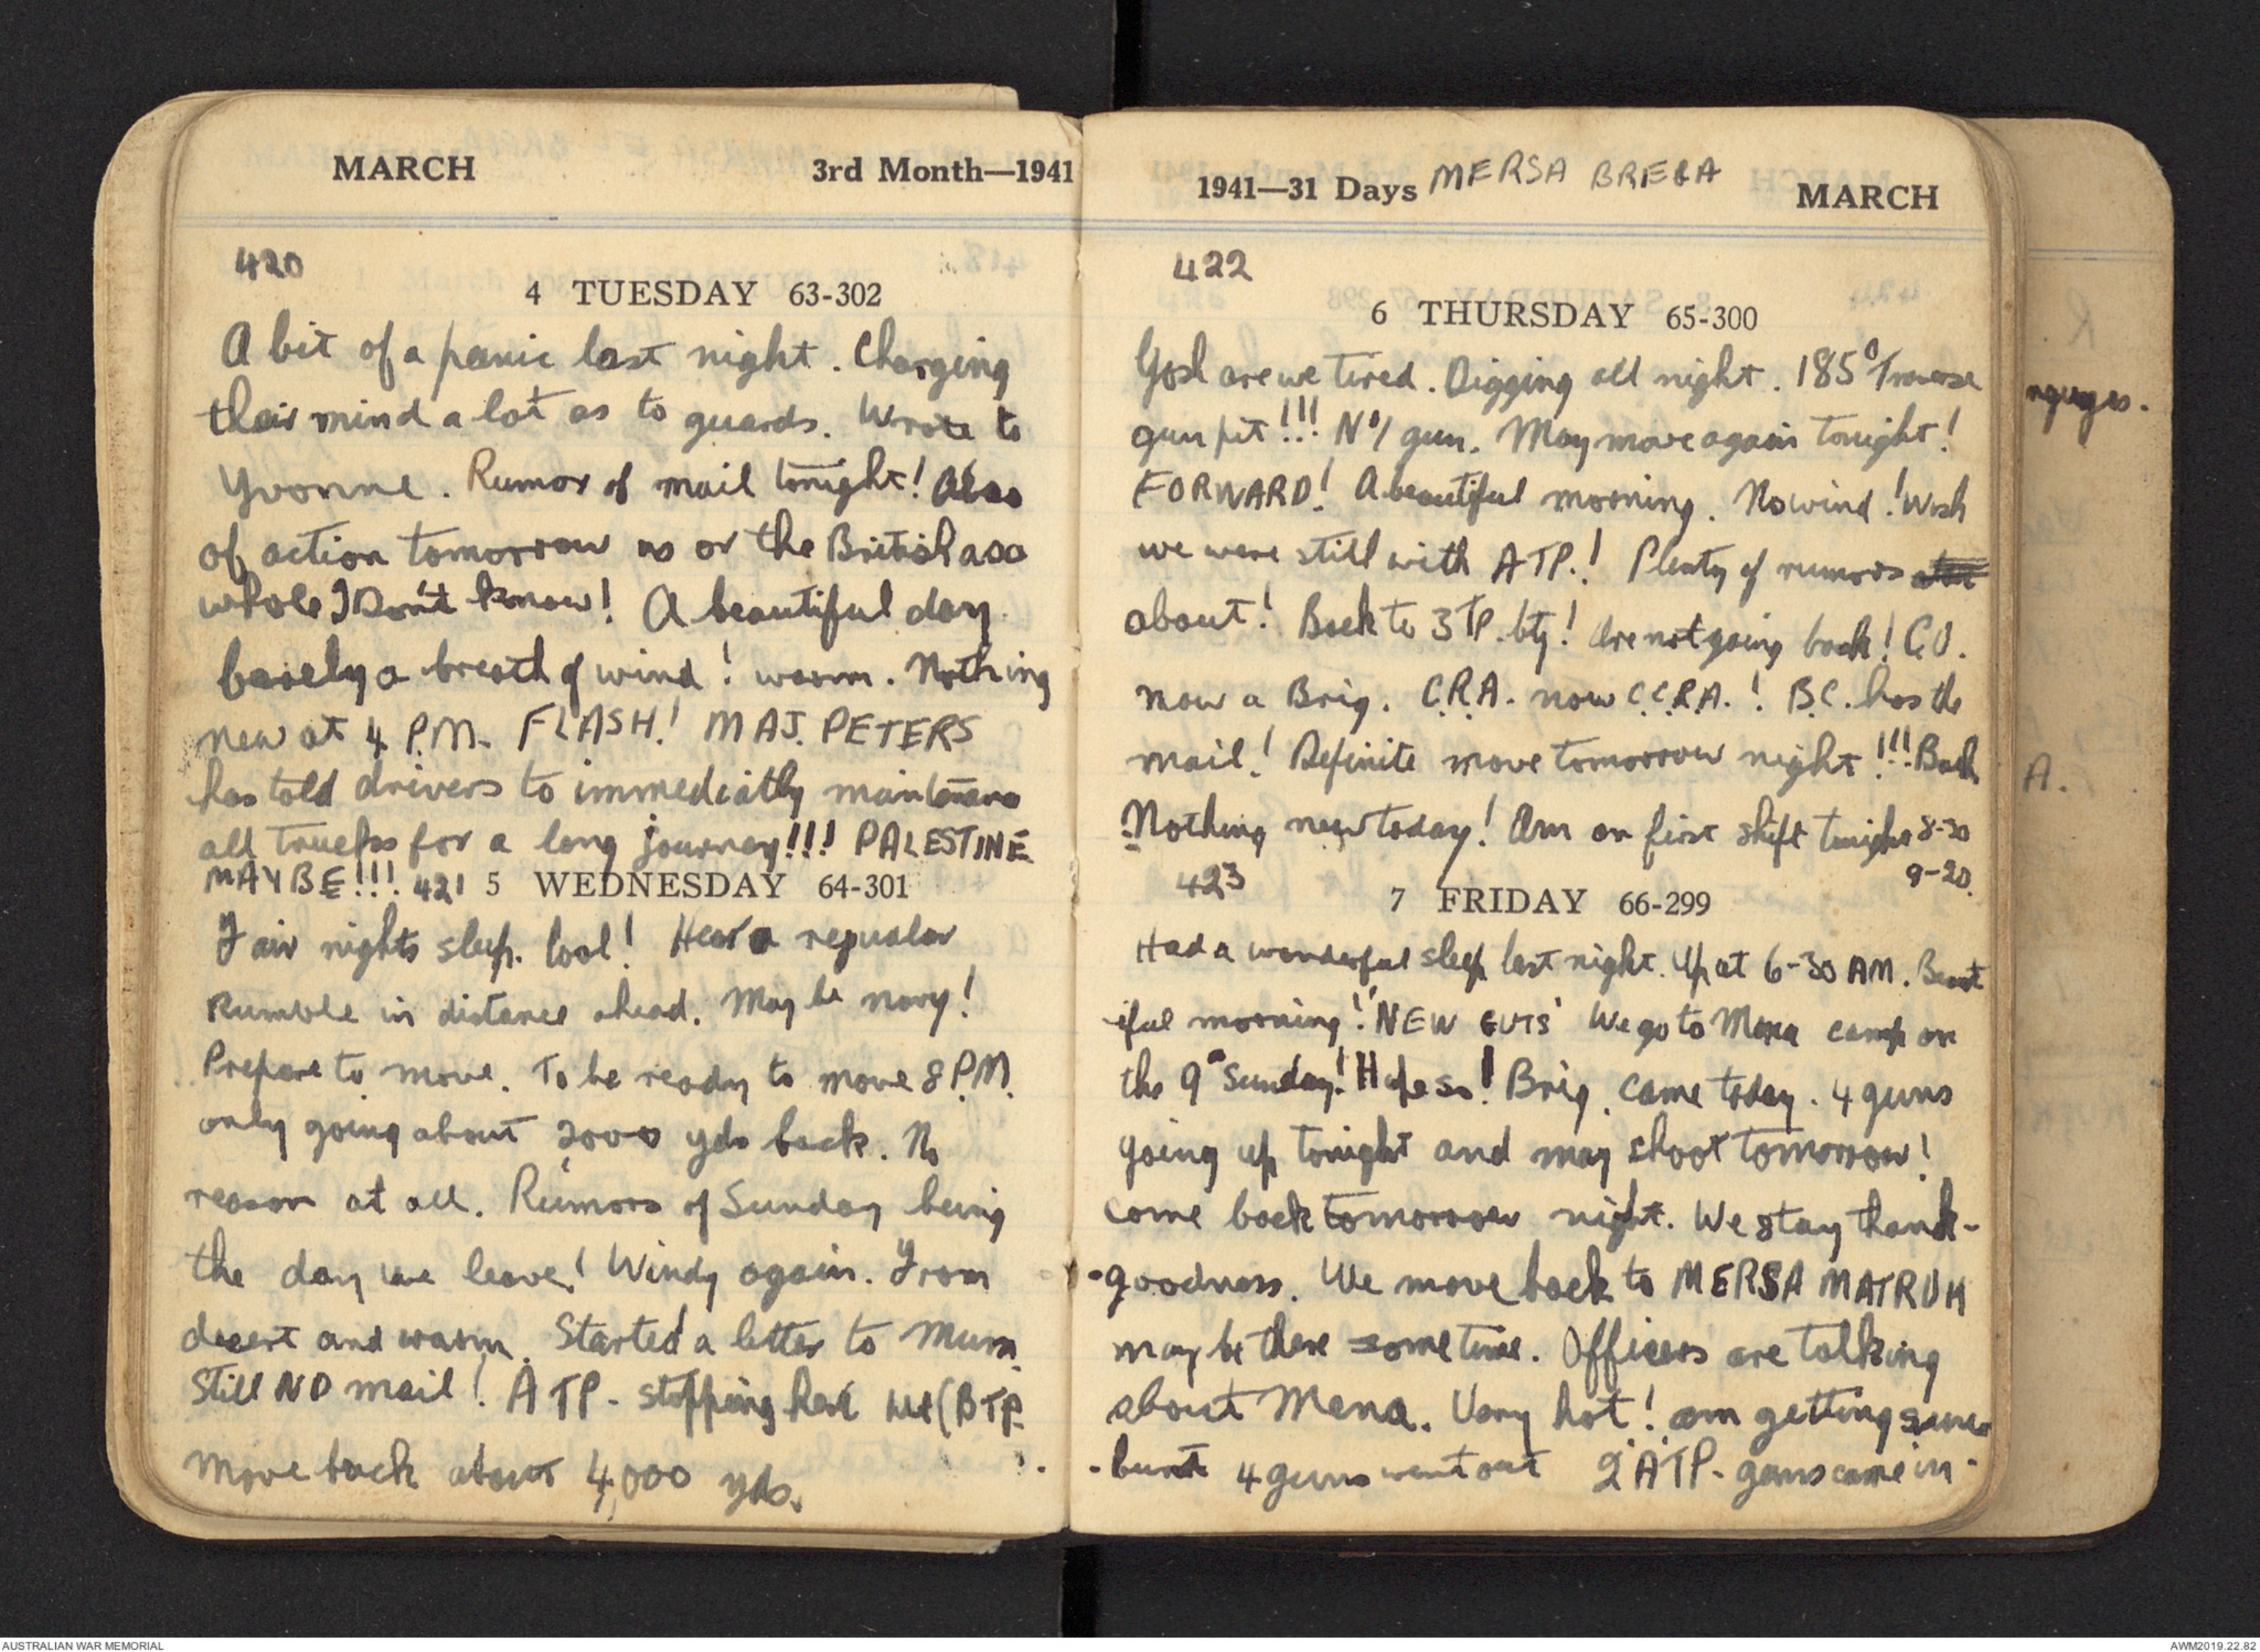 MARCH 3rd Month—1941
420
4 TUESDAY 63-302
A bit of a panic last night. Changing
their mind a lot as to guards. Wrote to
Yvonne. Rumor of mail tonight! Also
of action tomorrow us or the British as a
whole I Don't know! A beautiful day
barely a breath of wind! warm. Nothing
new at 4 P.M. FLASH! MAJ. PETERS
has told drivers to immediatly maintenance
all trucks for a long journey!!! PALESTINE
MAYBE!!!. 421 5 WEDNESDAY 64-301
Fair nights sleep. Cool! Hear a regular
Rumble in distance ahead. May be navy!
Prepare to move. To be ready to move 8 P.M.
only going about 2000 yds back. No
reason at all. Rumors of Sunday being
the day we leave! Windy again. From
desert and warm. Started a letter to Mum.
Still NO mail! A TP. stopping here We (B TP.
move back about 4,000 yds.
1941—31 Days MERSA BREGA MARCH
422
6 THURSDAY 65-300
Gosh are we tired. Digging all night. 185° Traverse
gun pit!!! No 1 gun. May move again tonight!
FORWARD! A beautiful morning. No wind! Wish
we were still with A TP.! Plenty of rumors
about! Back to 3 TP. bty! Are not going back! C.O.
now a Brig. C.R.A. now C.C.R.A.! B.C. has the
mail! Definite move tomorrow night!!! Back
Nothing new today! Am on first shift tonight 8-30
9-20.
423
7 FRIDAY 66-299
Had a wonderful sleep last night. Up at 6-30 AM. Beaut
-iful morning! "NEW GUTS" We go to Mena camp on
the 9th Sunday! Hope so! Brig. came today. 4 guns
going up tonight and may shoot tomorrow!
Come back tomorrow night. We stay thank-
-goodness. We move back to MERSA MATRUH
may be there sometime. Officers are talking
about Mena. Very hot! am getting sun
-burnt 4 guns went out 2 A TP. guns came in.
nguages.
A.
AUSTRALIAN WAR MEMORIAL AWM2019.22.82